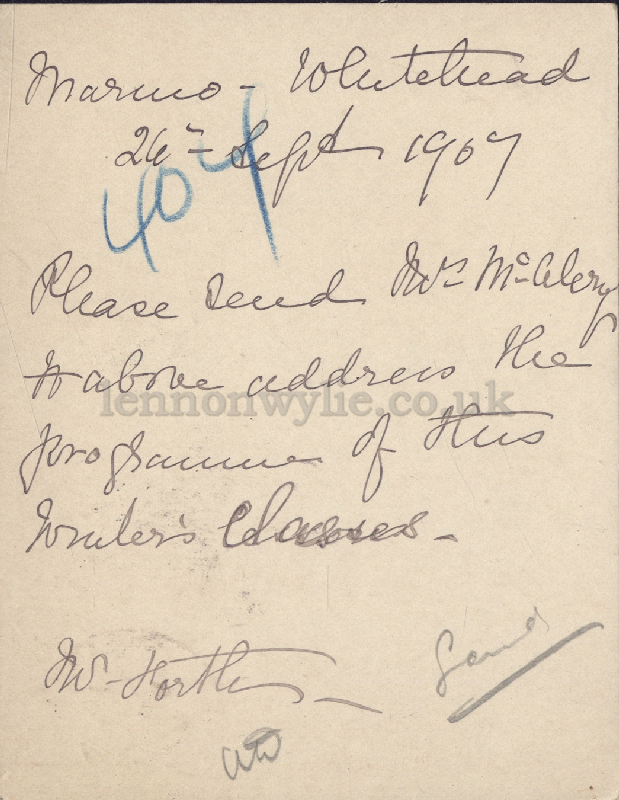 Marino - Whitehead
26th Sept 1907
404
Please send Mrs McAlery
to above address the
lennonwylie.co.uk
programme of this
Winter's Classes -
Mr Forth